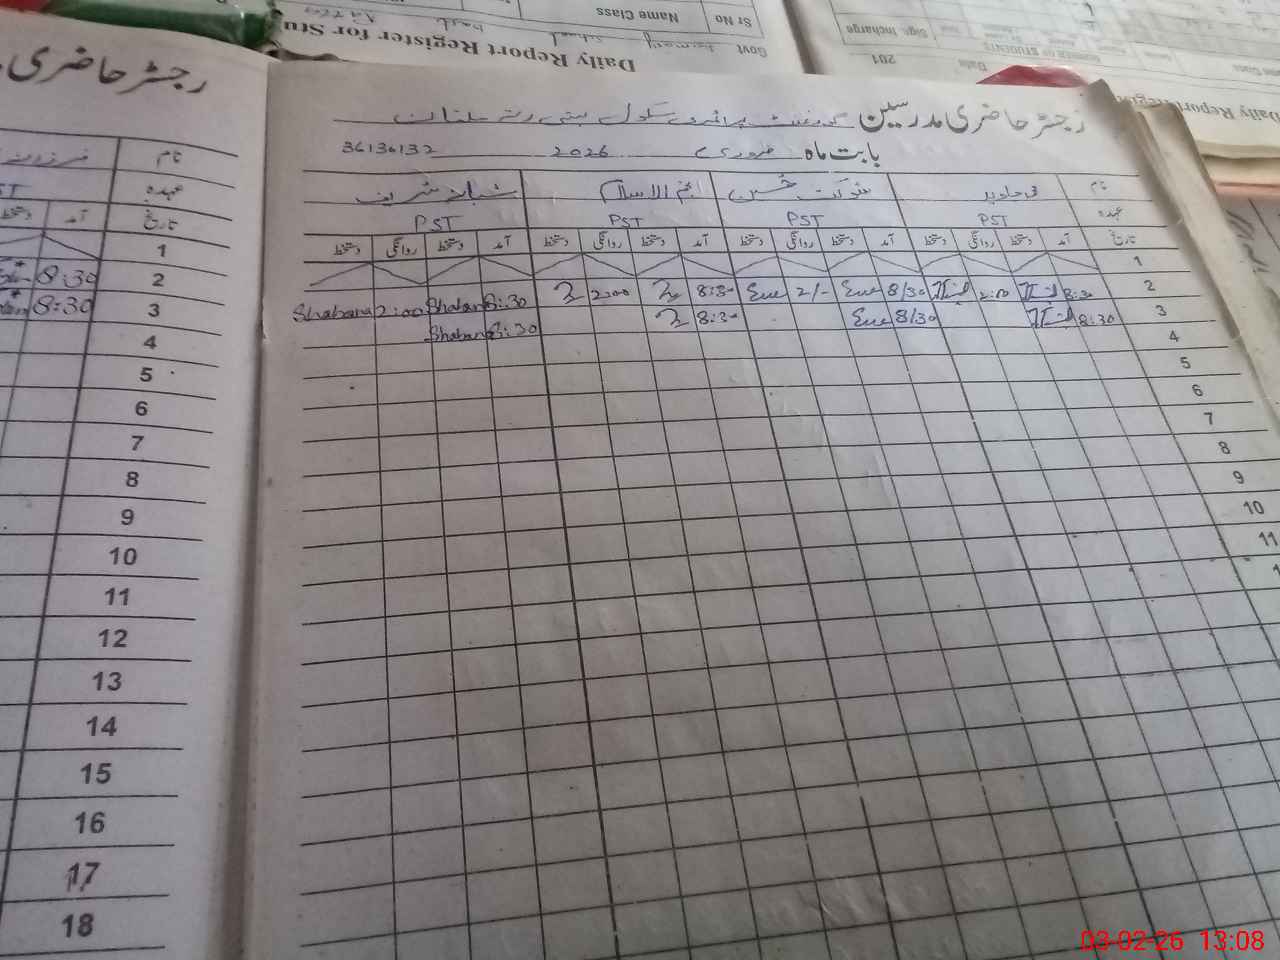 Govt
Daily Report Register for Stu
Sr No Name Class
Sign. Incharge
NUMBER OF STUDENTS
201 Date
Daily Report Regis
رجسٹر حاضری
نام
عہدہ
تاریخ
آمد دستخط
1
2 8:30
3 8:30
4
5
6
7
8
9
10
11
12
13
14
15
16
17
18
رجسٹر حاضری مدرسین گورنمنٹ پرائمری سکول بستی ملتان
بابت ماہ فروری 2026 36130132
نام جاوید شوکت حسین نجم الاسلام شبانہ شریف
عہدہ PST PST PST PST
تاریخ آمد دستخط روانگی دستخط آمد دستخط روانگی دستخط آمد دستخط روانگی دستخط آمد دستخط روانگی دستخط
1
2 8:30 2:00 8/30 2/- 8:30 2:00 8:30 Shabana 2:00 Shabana
3 8:30 8/30 8:30 8:30 Shabana
4
5
6
7
8
9
10
11
03-02-26 13:08